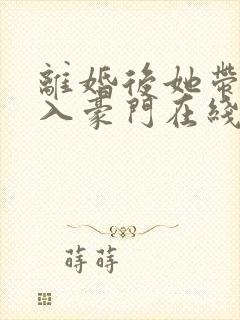 離婚後她帶
入豪門在綫
蒔蒔